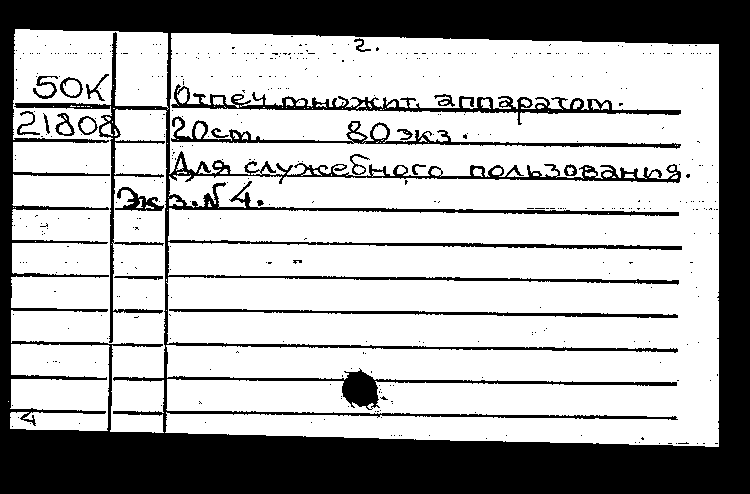 2.
50К Отпеч. множит. аппаратом.
21808 20 ст. 80 экз.
Для служебного пользования.
Экз. № 4.
4